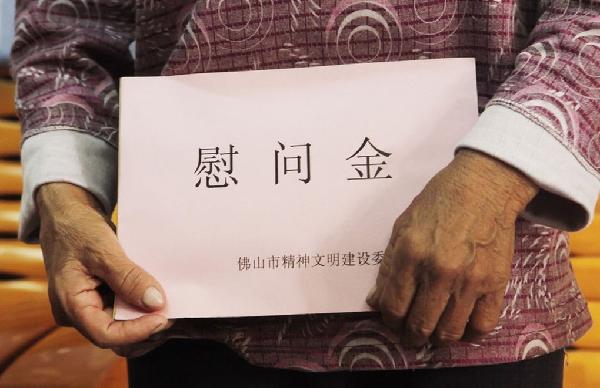 慰问金
佛山市精神文明建设委